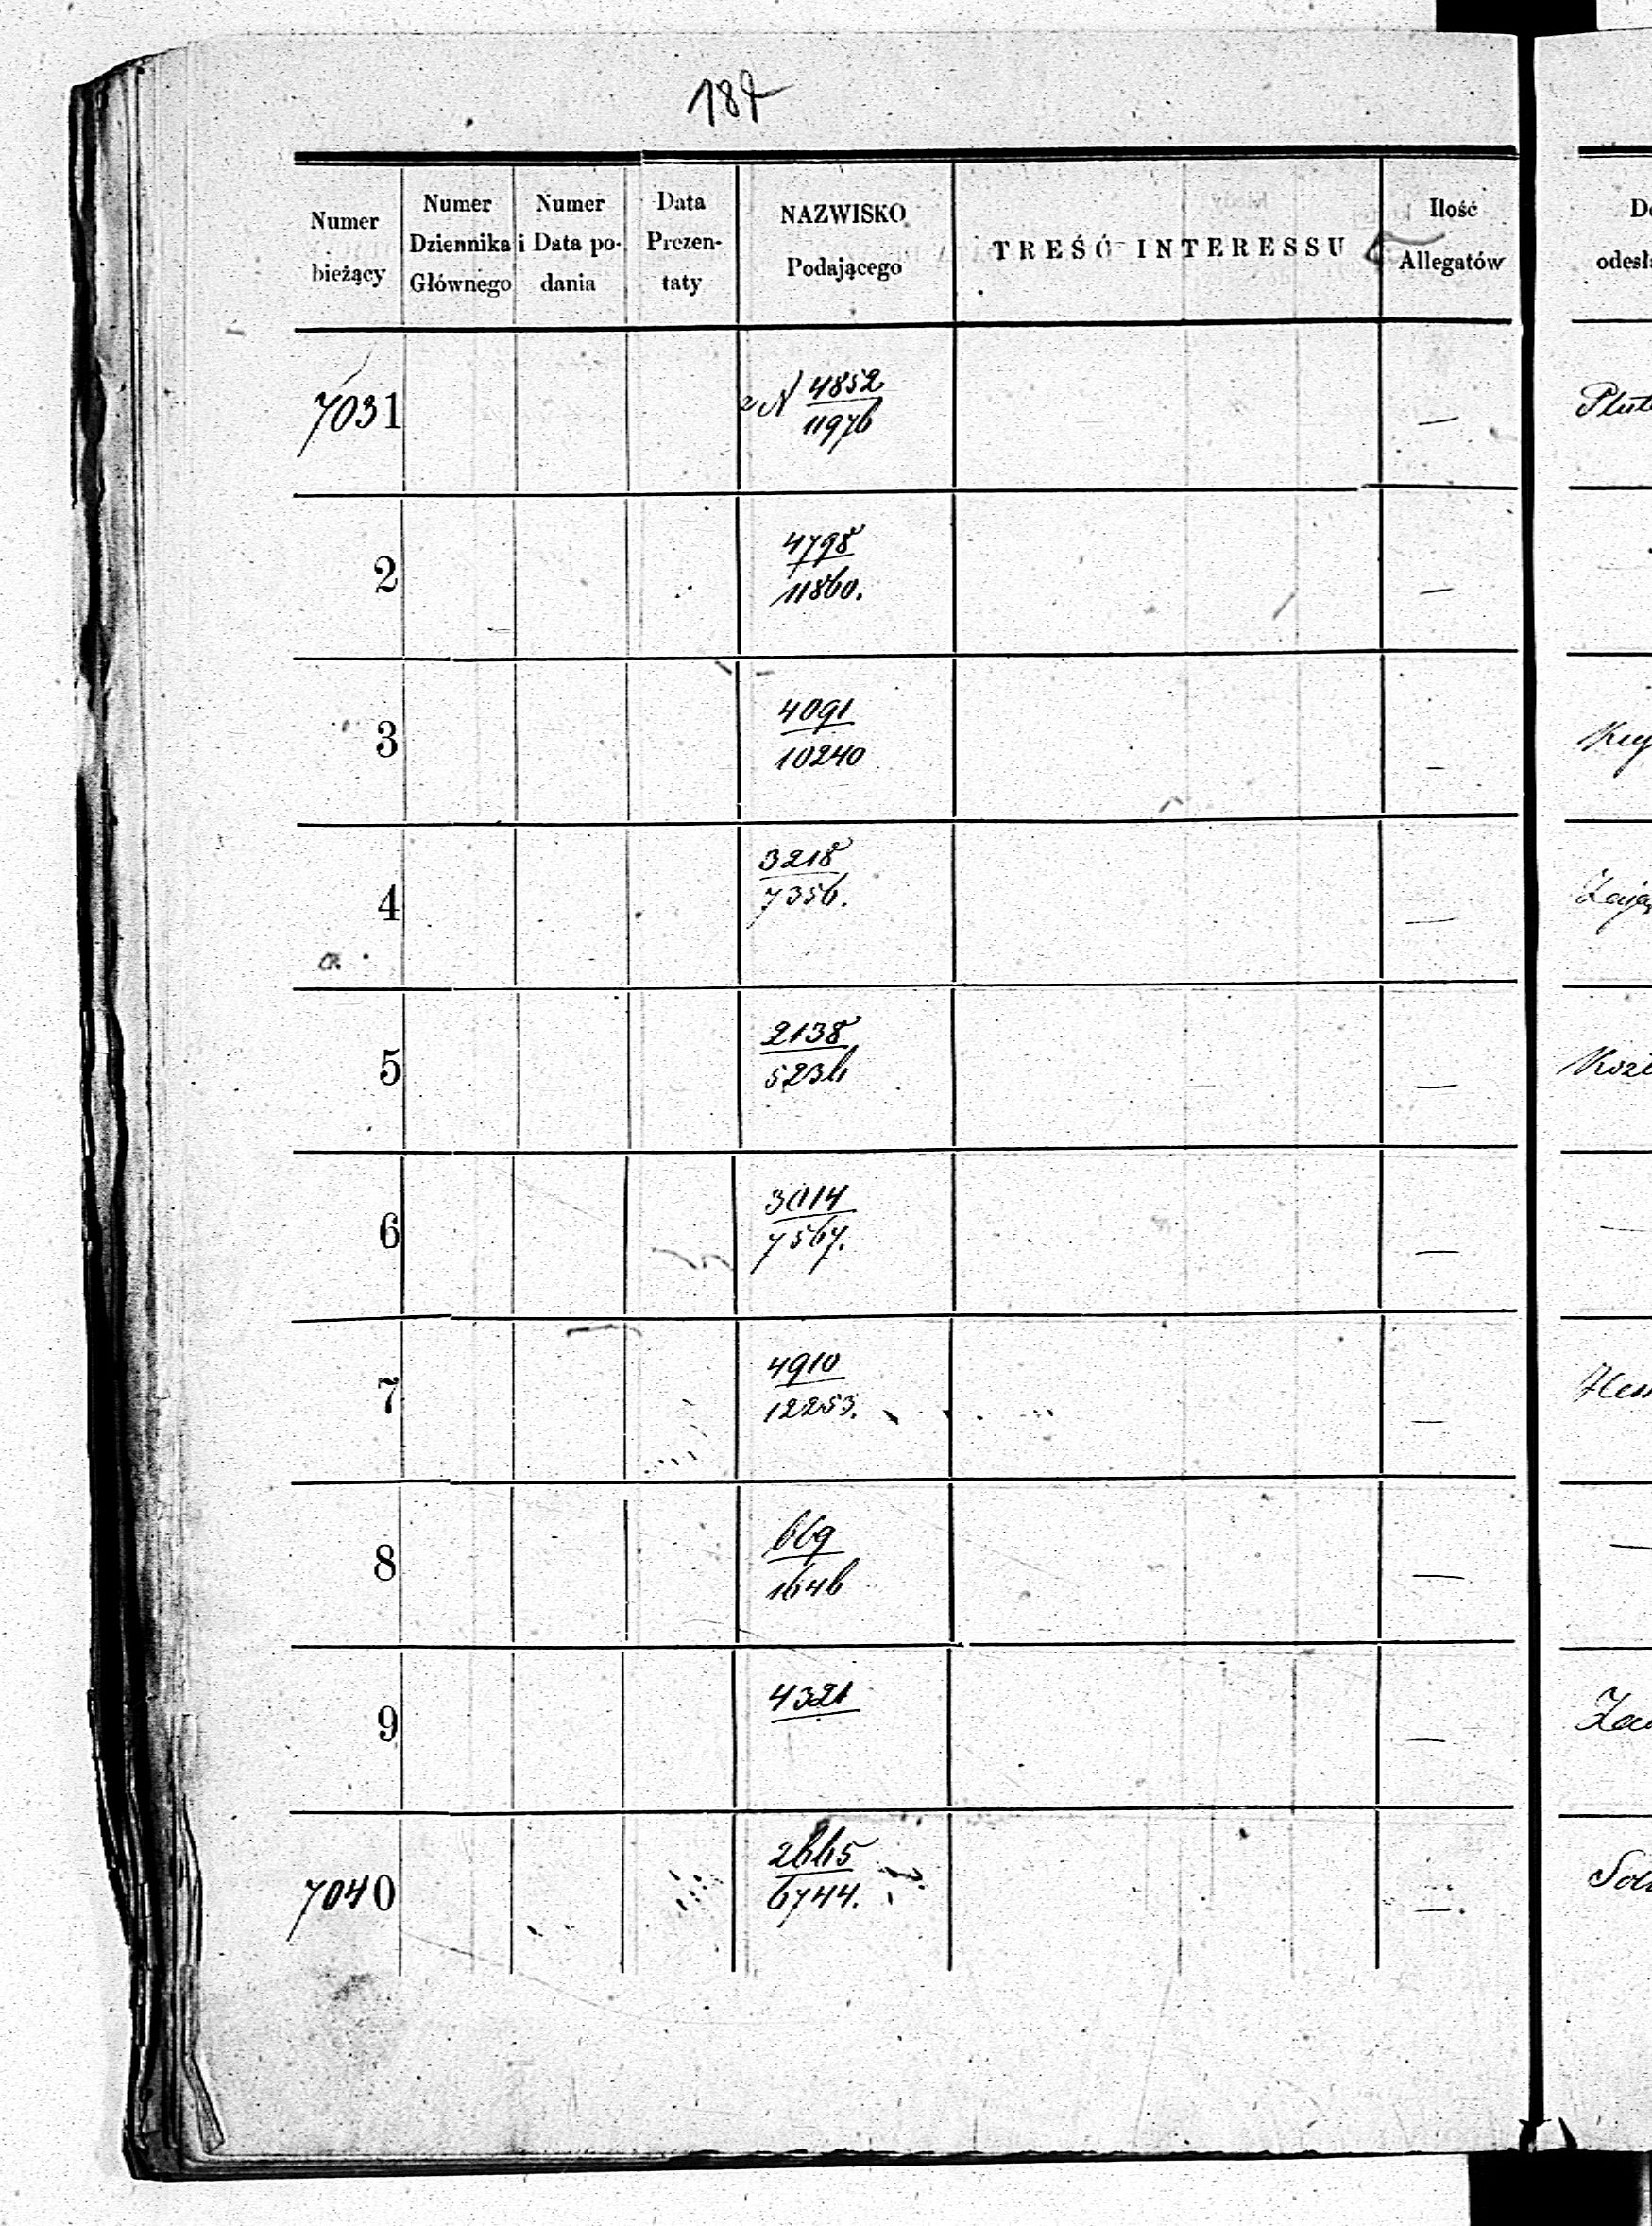 187
Numer bieżący
Numer Dziennika Głównego
Numer i Data podania
Data Prezentaty
NAZWISKO Podającego
TREŚĆ INTERESSU
Ilość Allegatów
7031
N 4852
11976
—
2
4798
11860.
—
3
4091
10240
—
4
3218
7356.
—
5
2138
5236
—
6
3014
7567.
—
7
4910
12253.
—
8
669
1646
—
9
4321
—
7040
2665
6744.
—